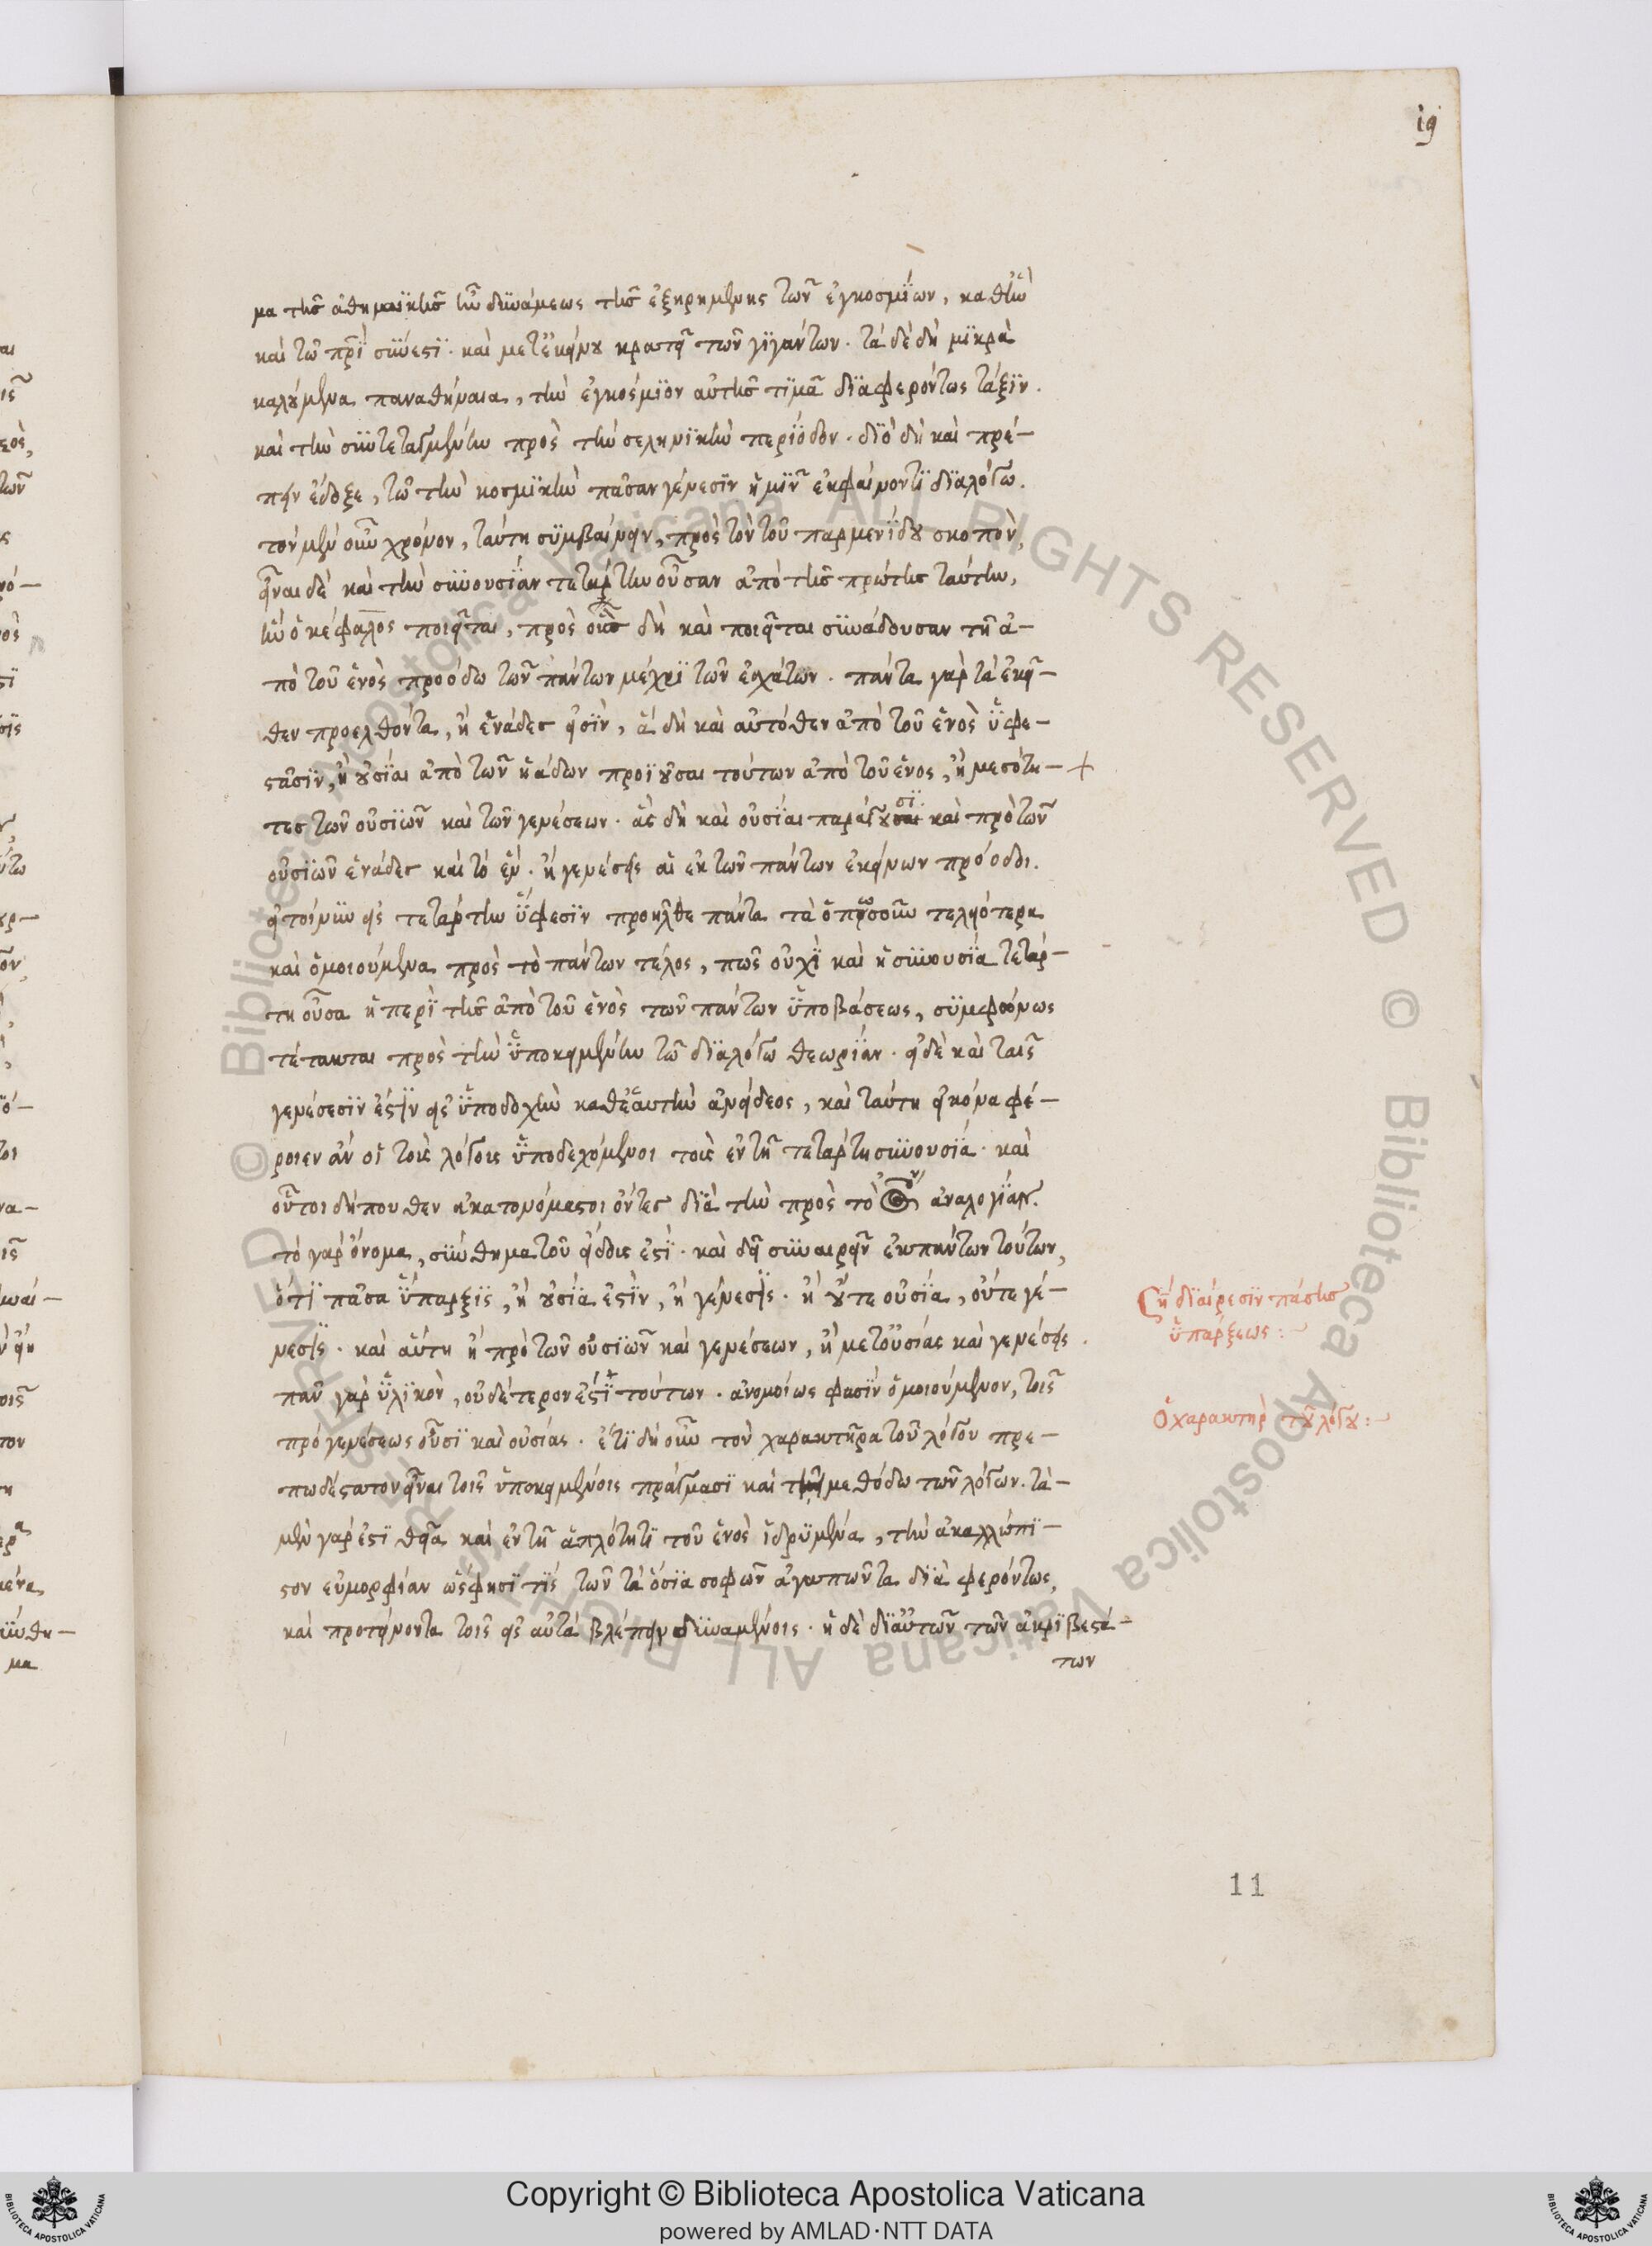 ιϛ
μα τῆς ἀθηναϊκῆς ἦν δυνάμεως τῆς ἐξῃρημένης τῶν ἐγκοσμίων, καθ' ἣν
καὶ τῶ πατρὶ σύνεστι. καὶ μετ' ἐκείνου κρατεῖ τῶν γιγάντων. τὰ δὲ δὴ μικρὰ
καλούμενα παναθήναια, τὴν ἐγκόσμιον αὐτῆς τιμᾶ διαφερόντως τάξιν.
καὶ τὴν συντεταγμένην πρὸς τὴν σεληνικὴν περίοδον. διὸ δὴ καὶ πρέ-
πειν ἔδοξε, τῶ τὴν κοσμικὴν πᾶσαν γένεσιν ἡμῖν ἐκφαίνοντι διαλόγω.
τὸν μὲν οὖν χρόνον, ταύτη συμβαίνειν, πρὸς τὸν τοῦ παρμενίδου σκοπὸν,
εἶναι δὲ καὶ τὴν συνουσίαν τετάρτην οὖσαν ἀπὸ τῆς πρώτης ταύτην,
ἣν ὁ κέφαλος ποιεῖται, πρὸς οὓς δὴ καὶ ποιεῖται συνάδουσαν τῆ ἀ-
πὸ τοῦ ἑνὸς προόδω τῶν πάντων μέχρι τῶν ἐσχάτων. πάντα γὰρ τὰ ἐκεῖ-
θεν προελθόντα, ἢ ἑνάδες εἰσὶν, ἃ δὴ καὶ αὐτόθεν ἀπὸ τοῦ ἑνὸς ὑφε-
στᾶσιν, ἢ οὐσίαι ἀπὸ τῶν ἑνάδων προϊοῦσαι τούτων ἀπὸ τοῦ ἑνος, ἢ μεσότη- +
τες τῶν οὐσιῶν καὶ τῶν γενέσεων. ἃς δὴ καὶ οὐσίαι παράγουσι καὶ πρὸ τῶν
οὐσιῶν ἑνάδες καὶ τὸ ἕν. ἢ γενέσεις αἱ ἐκ τῶν πάντων ἐκείνων πρόοδοι.
εἰ τοίνυν εἰς τετάρτην ὕφεσιν προῆλθε πάντα τὰ ὁπωσοῦν τελειότερα
καὶ ὁμοιούμενα πρὸς τὸ πάντων τέλος, πῶς οὐχὶ καὶ ἡ συνουσία τετάρ-
τη οὖσα ἡ περὶ τῆς ἀπὸ τοῦ ἑνὸς τῶν πάντων ὑποβάσεως, συμφώνως
τέτακται πρὸς τὴν ὑποκειμένην τῶ διαλόγω θεωρίαν. εἰ δὲ καὶ ταῖς
γενέσεσιν ἐστὶν εἰς ὑποδοχὴν καθ' ἑαυτὴν ἀνείδεος, καὶ ταύτη εἰκόνα φέ-
ροιεν ἂν οἱ τοὺς λόγους ὑποδεχόμενοι τοὺς ἐν τῆ τετάρτη συνουσία. καὶ
οὗτοι δήπουθεν ἀκατονόμαστοι ὄντες διὰ τὴν πρὸς τὸ ἀναλογίαν.
τὸ γὰρ ὄνομα, σύνθημα τοῦ εἴδους ἐστὶ. καὶ δεῖ συναιρεῖν ἐκ πάντων τούτων,
ὅτι πᾶσα ὕπαρξις, ἢ οὐσία ἐστὶν, ἢ γένεσις. ἢ οὔτε οὐσία, οὔτε γέ-
νεσις. καὶ αὕτη ἢ πρὸ τῶν οὐσιῶν καὶ γενέσεων, ἢ μετ' οὐσίας καὶ γενέσεις.
πᾶν γὰρ ὑλικὸν, οὐδέτερον ἐστὶ τούτων. ἀνομοίως φασὶν ὁμοιούμενον, τοῖς
πρὸ γενέσεως οὖσι καὶ οὐσίας. ἔτι δὴ οὖν τὸν χαρακτῆρα τοῦ λόγου πρε-
πωδέστατον εἶναι τοῖς ὑποκειμένοις πράγμασι καὶ τῆ μεθόδω τῶν λόγων. τὰ-
μὲν γὰρ ἐστὶ θεῖα καὶ ἐν τῆ ἁπλότητι τοῦ ἑνὸς ἱδρυμένα, τὴν ἀκαλλώπι-
στον εὐμορφίαν ὥς φησι τὶς τῶν τὰ ὅσια σοφῶν ἀγαπῶντα διὰ φερόντως,
καὶ προτείνοντα τοῖς εἰς αὐτὰ βλέπειν δυναμένοις. ἡ δὲ δι' αὐτῶν τῶν ἀκριβεστά-
των
ση διαίρεσιν πάσης
ὑπάρξεως:
ὁ χαρακτὴρ τοῦ λόγου:
11
© Biblioteca Apostolica Vaticana ALL RIGHTS RESERVED
Copyright © Biblioteca Apostolica Vaticana
powered by AMLAD·NTT DATA